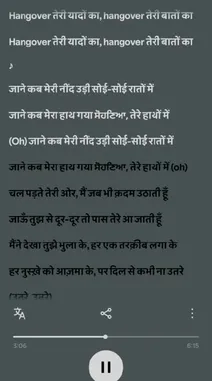 Hangover तेरी यादों का, hangover तेरी बातों का
Hangover तेरी यादों का, hangover तेरी बातों का
♪
जाने कब मेरी नींद उड़ी सोई-सोई रातों में
जाने कब मेरा हाथ गया सोहणिया, तेरे हाथों में
(Oh) जाने कब मेरी नींद उड़ी सोई-सोई रातों में
जाने कब मेरा हाथ गया सोहणिया, तेरे हाथों में (oh)
चल पड़ते तेरी ओर, मैं जब भी क़दम उठाती हूँ
जाऊँ तुझ से दूर-दूर तो पास तेरे आ जाती हूँ
मैंने देखा तुझे भुला के, हर एक तरक़ीब लगा के
हर नुस्ख़े को आज़मा के, पर दिल से कभी ना उतरे
(उतरे, उतरे)
3:06
6:15